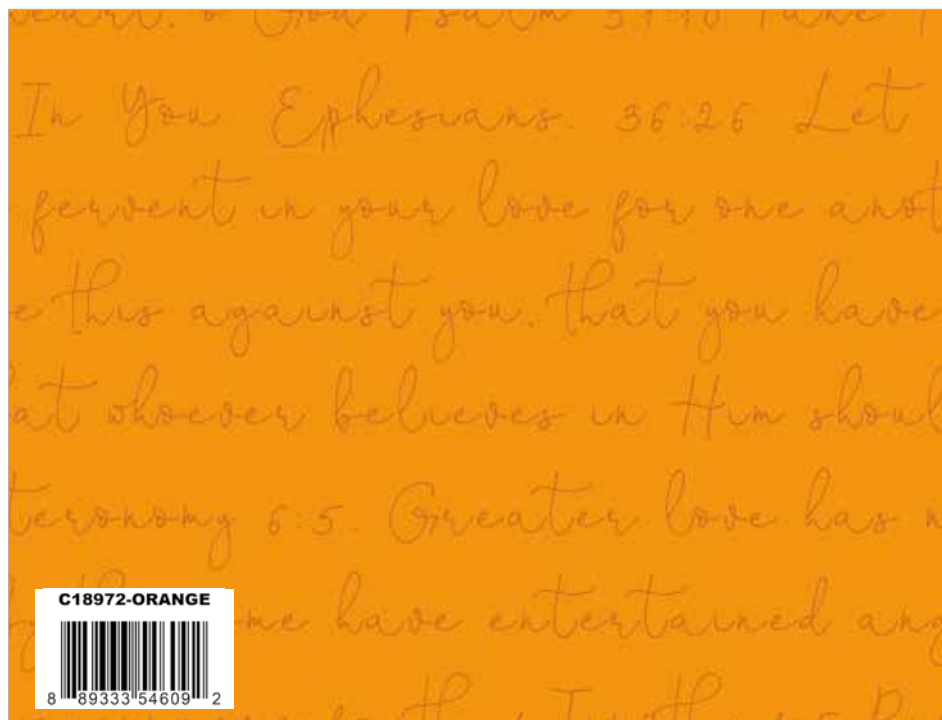 God Psalm 51:10 Take
In You Ephesians. 36:26 Let
fervent in your love for one anot
e this against you, that you have
at whoever believes in Him shoul
teronomy 6:5. Greater love has n
me have entertained ang
C18972-ORANGE
8 89333 54609 2